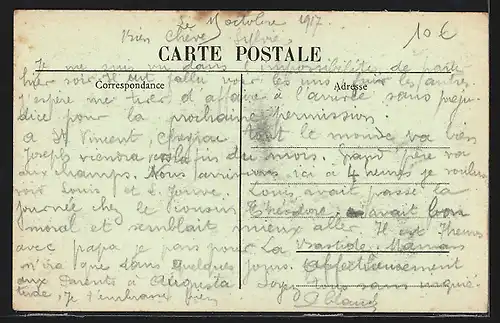 Le 11 octobre 1917
Bien Chère Sylvie 10 €
CARTE POSTALE
Je me suis vu dans l'impossibilité de partir
hier soir Il est fallu voir les uns fuir les autres
Correspondance Adresse
J'espère me tirer d'affaire à l'arrivée sans préju
dice pour la prochaine permission.
à St Vincent, tout le monde va bien
Joseph viendra fin du mois. Grand père va
aux champs. Nous arrivons ici à 4 heures je voulais
voir Louis et E. Jouve. Louis avait passé la
journée chez le cousin Théodore, avait bon
moral et semblait mieux aller. Il est 7 heures
avec papa je pars pour La Bastide. Maman
n'ira que dans quelques jours. Affectueusement
aux parents à Augusta Soyez tous sans inquié
tude, Je t'embrasse bien